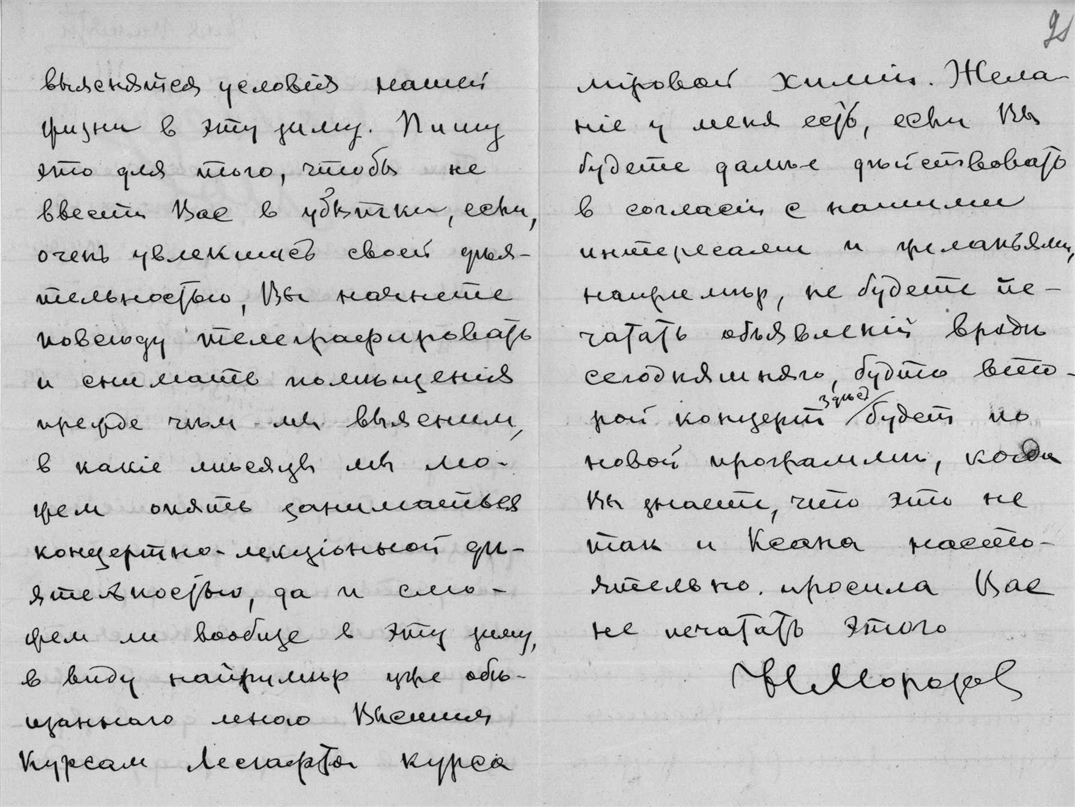 выяснятся условія нашей
жизни въ эту зиму. Пишу
это для того, чтобы не
ввести Вас в убытки, если,
очень увлекшись своей дѣя-
тельностью, Вы начнете
повсюду телеграфировать
и снимать помѣщенія
прежде чѣм мы выясним,
в какіе мѣсяцы мы мо-
жем опять заниматься
концертно-лекціонной дѣ-
ятельностью, да и смо-
жем ли вообще в эту зиму,
в виду напримѣр уже обѣ-
щаннаго мною Высшим
Курсам Лесгафта курса
міровой химіи. Жела-
ніе у меня есть, если Вы
будете далѣе дѣйствовать
в согласіи с нашими
интересами и желаньями,
напримѣр, не будете пе-
чатать объявленій вродѣ
сегодняшняго, будто вто-
рой концерт здѣсь будет по
новой программѣ, когда
Вы знаете, что это не
так и Ксана насто-
ятельно просила Вас
не печатать этого
Н Морозов